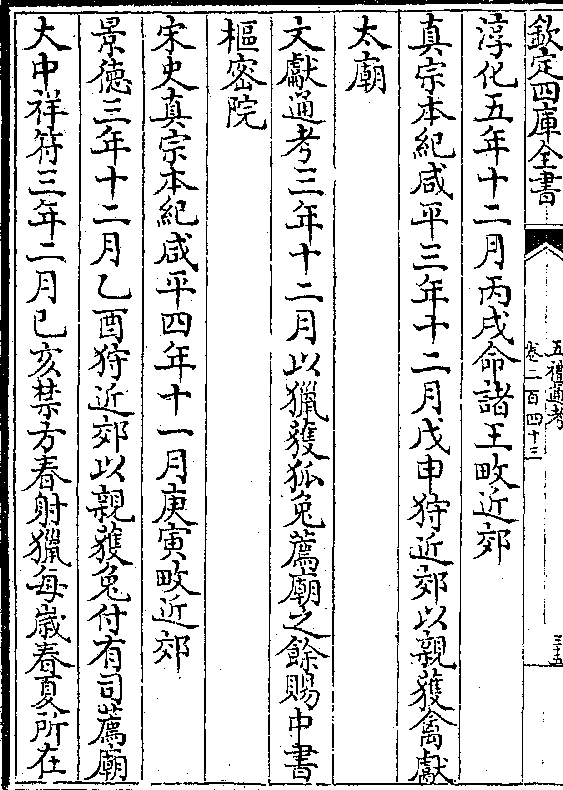 欽定四庫全書
五禮通考
卷二百四十三
三十五
淳化五年十二月丙戌命諸王畋近郊
真宗本紀咸平三年十二月戊申狩近郊以親獲禽獻
太廟
文獻通考三年十二月以獵獲狐兔薦廟之餘賜中書
樞密院
宋史真宗本紀咸平四年十一月庚寅畋近郊
景德三年十二月乙酉狩近郊以親獲兔付有司薦廟
大中祥符三年二月己亥禁方春射獵每歲春夏所在